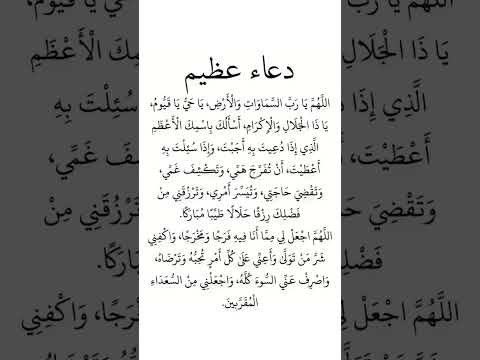 دعاء عظيم
اللَّهُمَّ يَا رَبَّ السَّمَاوَاتِ وَالْأَرْضِ، يَا حَيُّ يَا قَيُّومُ،
يَا ذَا الْجَلَالِ وَالْإِكْرَامِ، أَسْأَلُكَ بِاسْمِكَ الْأَعْظَمِ
الَّذِي إِذَا دُعِيتَ بِهِ أَجَبْتَ، وَإِذَا سُئِلْتَ بِهِ
أَعْطَيْتَ، أَنْ تُفَرِّجَ هَمِّي، وَتَكْشِفَ غَمِّي،
وَتَقْضِيَ حَاجَتِي، وَتُيَسِّرَ أَمْرِي، وَتَرْزُقَنِي مِنْ
فَضْلِكَ رِزْقًا حَلَالًا طَيِّبًا مُبَارَكًا.
اللَّهُمَّ اجْعَلْ لِي مِمَّا أَنَا فِيهِ فَرَجًا وَمَخْرَجًا، وَاكْفِنِي
شَرَّ مَنْ تَوَلَّى وَأَعِنِّي عَلَى كُلِّ أَمْرٍ تُحِبُّهُ وَتَرْضَاهُ،
وَاصْرِفْ عَنِّي السُّوءَ كُلَّهُ، وَاجْعَلْنِي مِنَ السُّعَدَاءِ
الْمُقَرَّبِينَ.